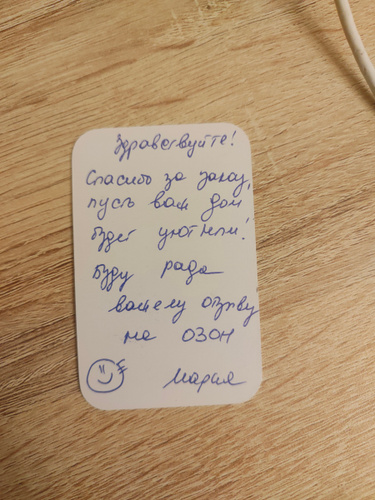 Здравствуйте!
Спасибо за заказ,
пусть ваш дом
будет уютным!
Буду рада
вашему отзыву
на ОЗОН
Мария